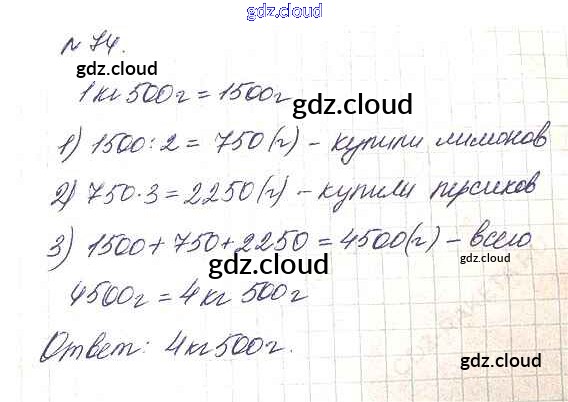 gdz.cloud
№ 74.
gdz.cloud
1 кг 500 г = 1500 г
gdz.cloud
1) 1500 : 2 = 750 (г) – купили лимонов
gdz.cloud
2) 750 · 3 = 2250 (г) – купили персиков
3) 1500 + 750 + 2250 = 4500 (г) – всего
gdz.cloud
gdz.cloud
4500 г = 4 кг 500 г
Ответ: 4 кг 500 г.
gdz.cloud
gdz.cloud